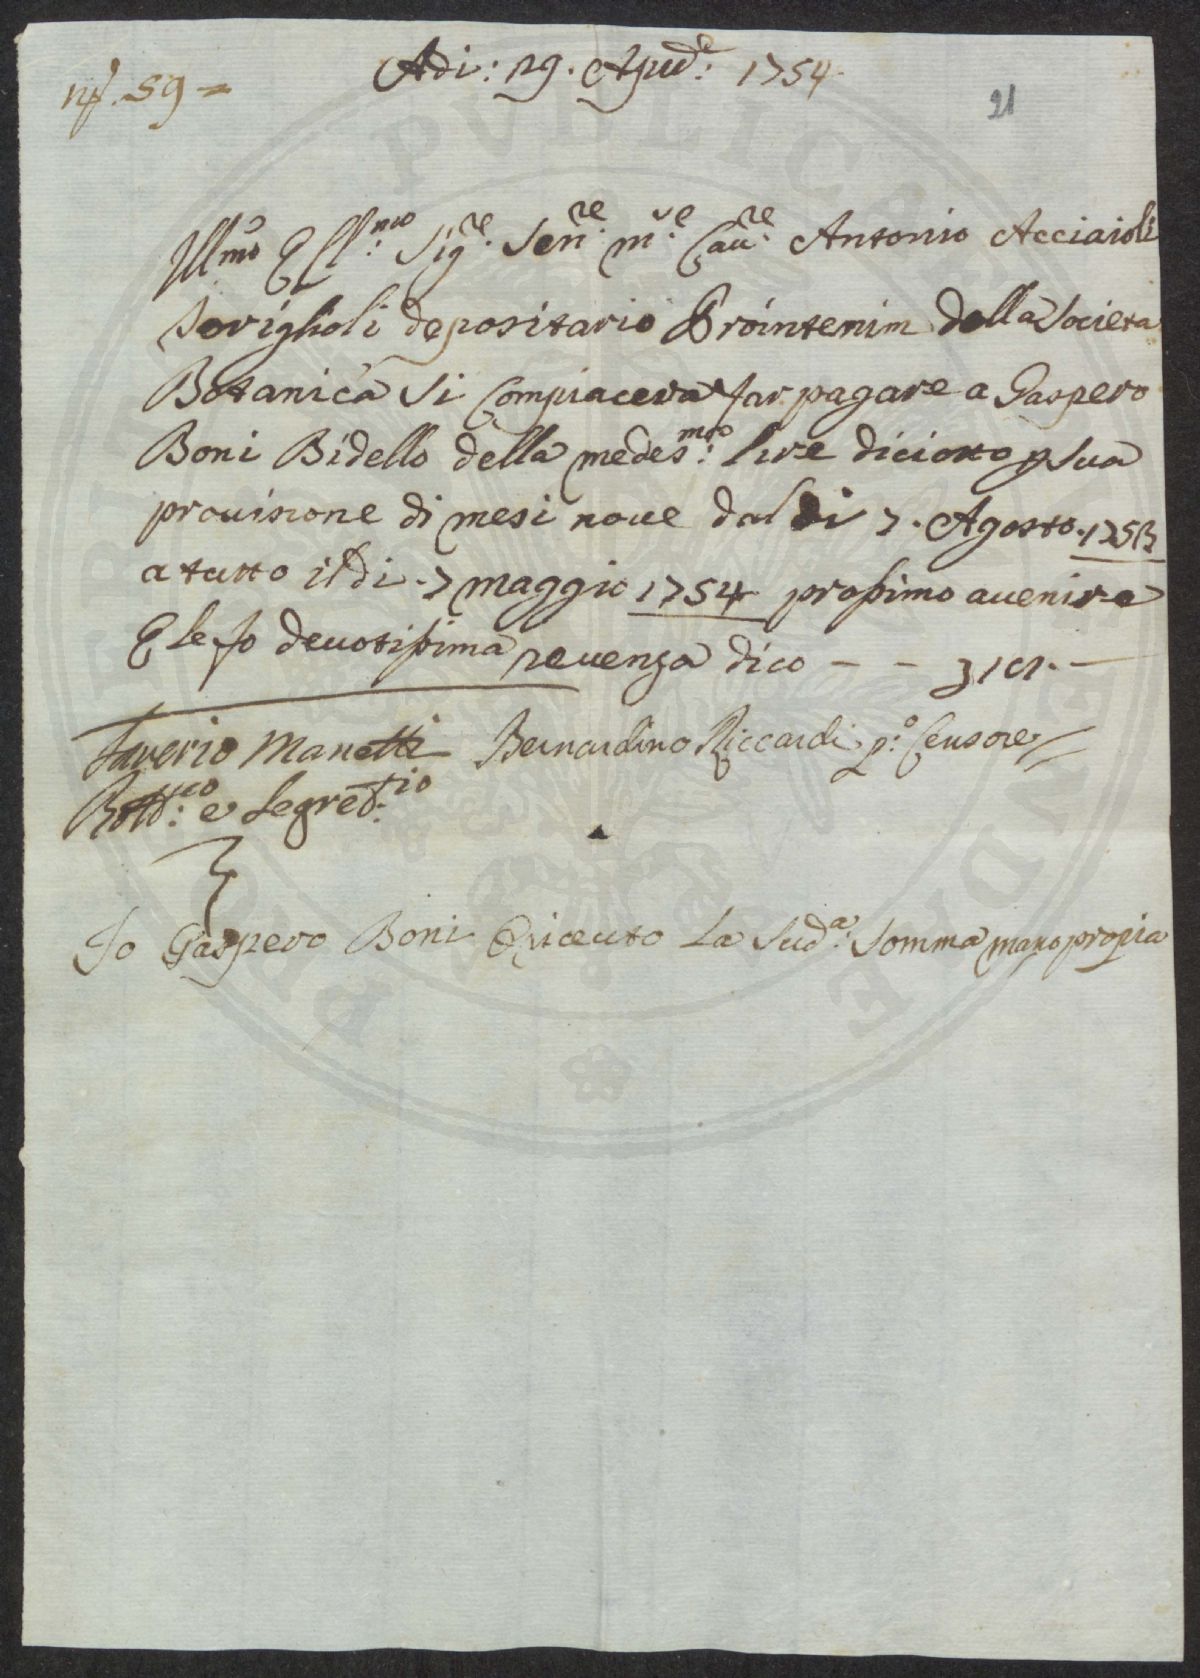 nº. 59 =
Adi: 29. Aprile: 1754
21
Ill.mo E Cl:mo Sig:re Sen:re m:se Cav:re Antonio Acciaioli
Soriglioli depositario Prointerim della Societa
Botanica Si Compiacerà far pagare a Gaspero
Boni Bidello della medes:ma lire diciotto p sua
provisione di mesi nove dal di 7. Agosto. 1753
a tutto il di 7 maggio 1754 prossimo avenire
E le fo devotissima revenza dico - - 318. -
Saverio Manetti Bernardino Riccardi p:o Censore
Bott:co e Segret:rio
Io Gaspero Boni O ricevto La Sud:a Somma mano propia